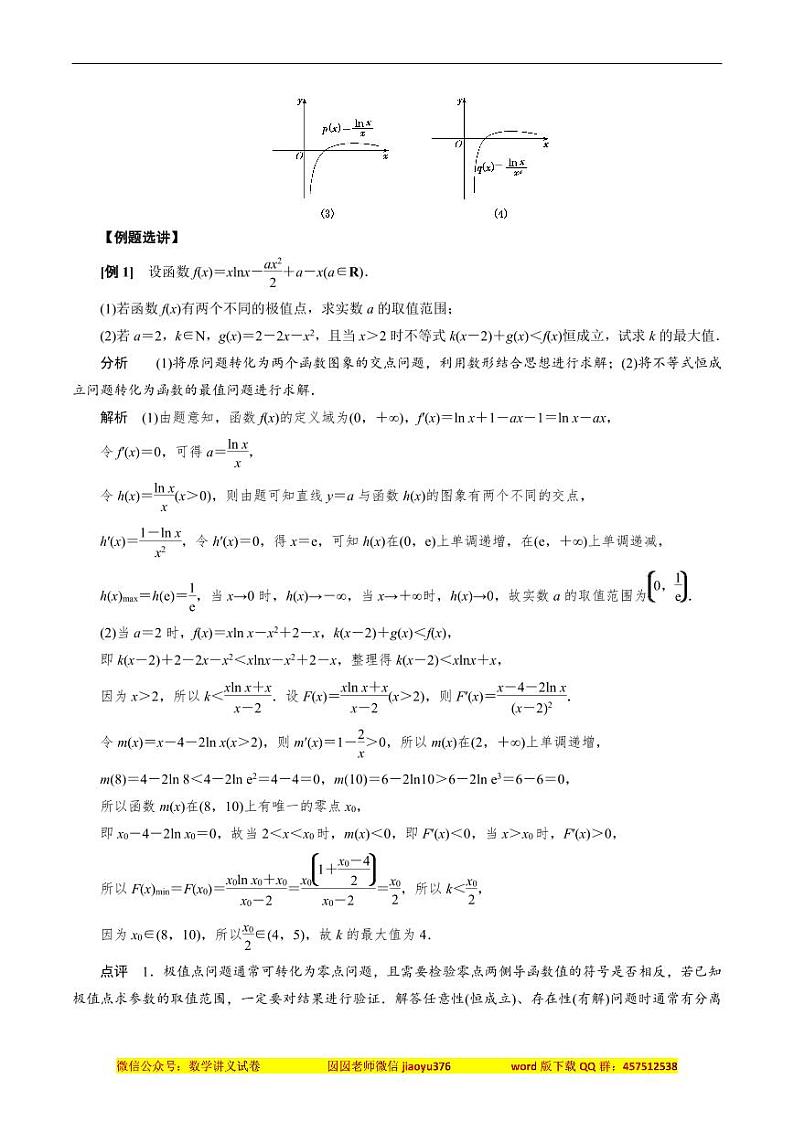 y
p(x)=ln x/x
O
x
(3)
y
O
x
q(x)=ln x/x²
(4)
【例题选讲】
[例1] 设函数 f(x)=xlnx-ax²/2+a-x(a∈R).
(1)若函数 f(x)有两个不同的极值点，求实数 a 的取值范围；
(2)若 a=2，k∈N，g(x)=2-2x-x²，且当 x>2 时不等式 k(x-2)+g(x)<f(x)恒成立，试求 k 的最大值.
分析 (1)将原问题转化为两个函数图象的交点问题，利用数形结合思想进行求解；(2)将不等式恒成
立问题转化为函数的最值问题进行求解.
解析 (1)由题意知，函数 f(x)的定义域为(0，+∞)，f′(x)=ln x+1-ax-1=ln x-ax，
令 f′(x)=0，可得 a=ln x/x，
令 h(x)=ln x/x(x>0)，则由题可知直线 y=a 与函数 h(x)的图象有两个不同的交点，
h′(x)=(1-ln x)/x²，令 h′(x)=0，得 x=e，可知 h(x)在(0，e)上单调递增，在(e，+∞)上单调递减，
h(x)max=h(e)=1/e，当 x→0 时，h(x)→-∞，当 x→+∞时，h(x)→0，故实数 a 的取值范围为(0，1/e).
(2)当 a=2 时，f(x)=xln x-x²+2-x，k(x-2)+g(x)<f(x)，
即 k(x-2)+2-2x-x²<xlnx-x²+2-x，整理得 k(x-2)<xlnx+x，
因为 x>2，所以 k<(xln x+x)/(x-2). 设 F(x)=(xln x+x)/(x-2)(x>2)，则 F′(x)=(x-4-2ln x)/(x-2)².
令 m(x)=x-4-2ln x(x>2)，则 m′(x)=1-2/x>0，所以 m(x)在(2，+∞)上单调递增，
m(8)=4-2ln 8<4-2ln e²=4-4=0，m(10)=6-2ln10>6-2ln e³=6-6=0，
所以函数 m(x)在(8，10)上有唯一的零点 x₀，
即 x₀-4-2ln x₀=0，故当 2<x<x₀时，m(x)<0，即 F′(x)<0，当 x>x₀时，F′(x)>0，
所以 F(x)min=F(x₀)=(x₀ln x₀+x₀)/(x₀-2)=x₀(1+(x₀-4)/2)/(x₀-2)=x₀/2，所以 k<x₀/2，
因为 x₀∈(8，10)，所以x₀/2∈(4，5)，故 k 的最大值为 4.
点评 1．极值点问题通常可转化为零点问题，且需要检验零点两侧导函数值的符号是否相反，若已知
极值点求参数的取值范围，一定要对结果进行验证．解答任意性(恒成立)、存在性(有解)问题时通常有分离
微信公众号：数学讲义试卷 囡囡老师微信 jiaoyu376 word 版下载 QQ 群：457512538